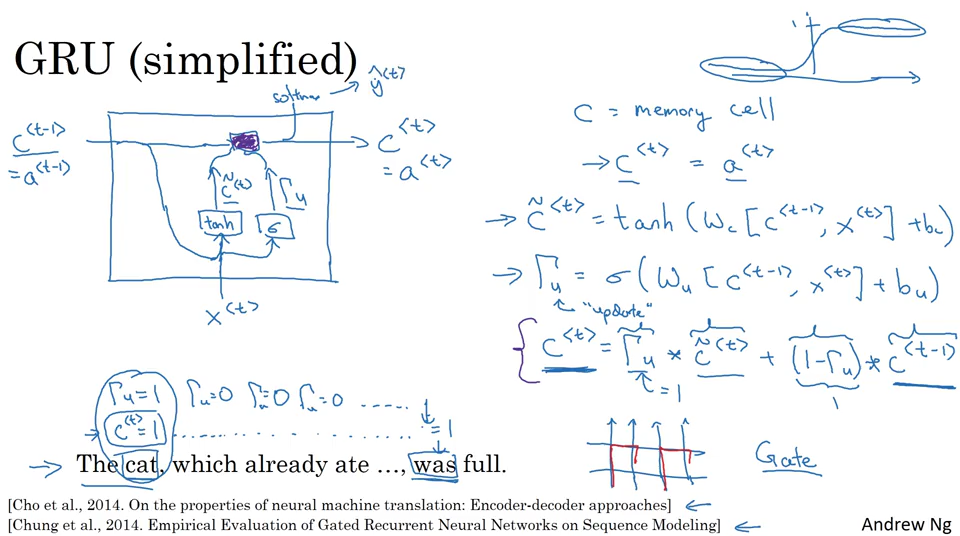 GRU (simplified)
softmax → ŷ<t>
c<t-1>
= a<t-1>
c<t>
= a<t>
c̃<t>
Γu
tanh
σ
x<t>
1
C = memory cell
→ c<t> = a<t>
→ c̃<t> = tanh(Wc[c<t-1>, x<t>] + bc)
→ Γu = σ(Wu[c<t-1>, x<t>] + bu)
"update"
c<t> = Γu * c̃<t> + (1-Γu) * c<t-1>
= 1
1
Γu=1 Γu=0 Γu=0 Γu=0 .....
c<t>=1 ........ =1
→ The cat, which already ate …, was full.
Gate
[Cho et al., 2014. On the properties of neural machine translation: Encoder-decoder approaches] ←
[Chung et al., 2014. Empirical Evaluation of Gated Recurrent Neural Networks on Sequence Modeling] ←
Andrew Ng